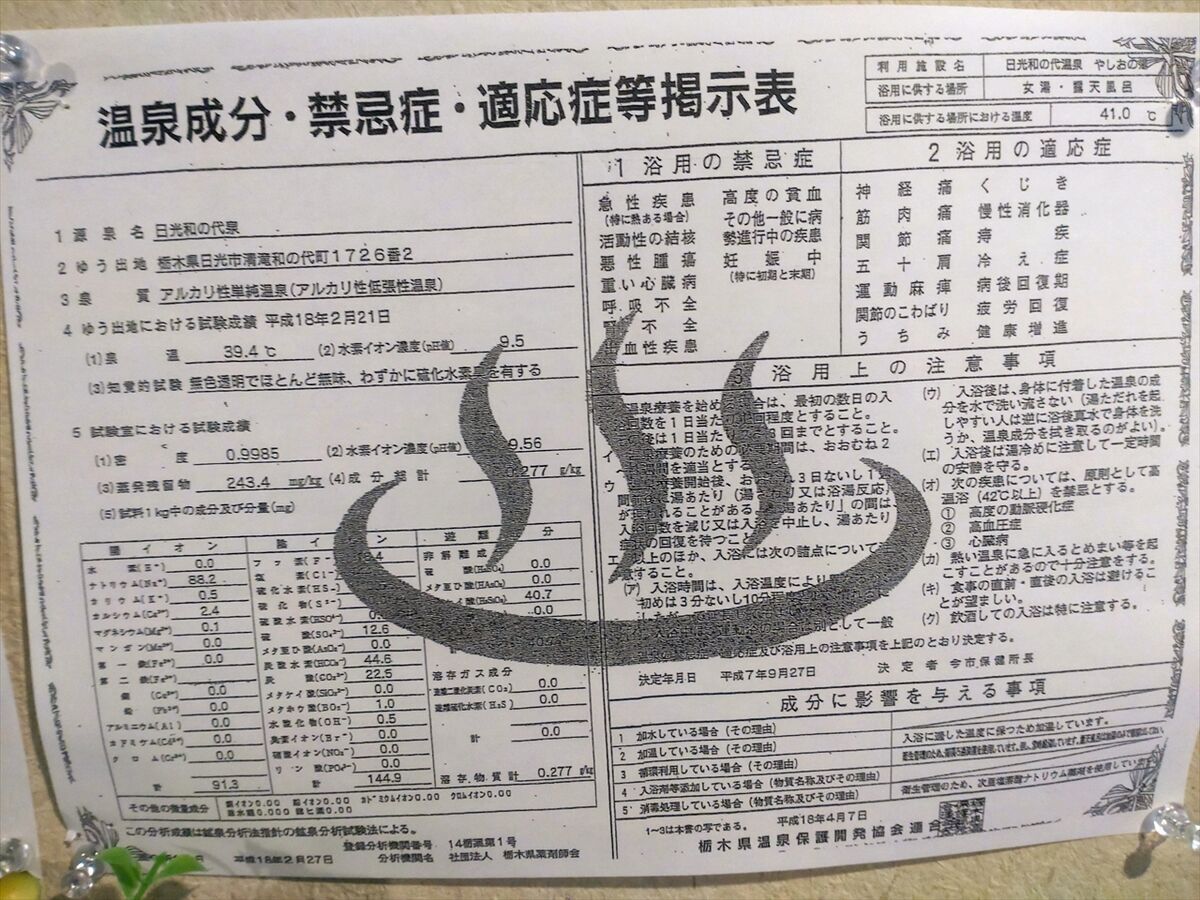 温泉成分・禁忌症・適応症等掲示表
利用施設名 日光和の代温泉 やしおの湯
浴用に供する場所 女湯・露天風呂
浴用に供する場所における温度 41.0 ℃
1 源泉名 日光和の代泉
2 ゆう出地 栃木県日光市清滝和の代町1726番2
3 泉質 アルカリ性単純温泉(アルカリ性低張性温泉)
4 ゆう出地における試験成績 平成18年2月21日
(1)泉温 39.4 ℃ (2)水素イオン濃度(pH値) 9.5
(3)知覚的試験 無色透明でほとんど無味、わずかに硫化水素臭を有する
5 試験室における試験成績
(1)密度 0.9985 (2)水素イオン濃度(pH値) 9.56
(3)蒸発残留物 243.4 mg/kg (4)成分総計 0.277 g/kg
(5)試料1kg中の成分及び分量(mg)
陽イオン
水素(H+) 0.0
ナトリウム(Na+) 88.2
カリウム(K+) 0.5
カルシウム(Ca2+) 2.4
マグネシウム(Mg2+) 0.1
マンガン(Mn2+) 0.0
第一鉄(Fe2+) 0.0
第二鉄(Fe3+)
銅 0.0
鉛 0.0
アルミニウム(Al) 0.0
カドミウム 0.0
クロム 0.0
計 91.3
フッ素(F-
塩素(Cl-
硫化水素(HS-
硫化物(S2-
硫酸水素(HSO4-
硫酸(SO42-) 12.6
メタ亜ひ酸(AsO2-) 0.0
炭酸水素(HCO3-) 44.6
炭酸(CO32-) 22.5
メタケイ酸 0.0
メタホウ酸(BO2-) 1.0
水酸化物(OH-) 0.5
臭素イオン(Br-) 0.0
硝酸イオン 0.0
リン酸 0.0
計 144.9
遊離 分
非解離成
硫酸(H2SO4) 0.0
メタ亜ひ酸 0.0
40.7
0.0
溶存ガス成分
遊離二酸化炭素(CO2) 0.0
遊離硫化水素(H2S 0.0
計 0.0
溶存物質計 0.277 g/kg
その他の微量成分 銅イオン0.00 鉛イオン0.00 カドミウムイオン0.00 クロムイオン0.00
総水銀0.000 総ヒ素0.00
この分析成績は鉱泉分析法指針の鉱泉分析試験法による。
登録分析機関番号 14栃薬第1号
平成18年2月27日 分析機関名 社団法人 栃木県薬剤師会
1 浴用の禁忌症
急性疾患 高度の貧血
(特に熱ある場合) その他一般に病
活動性の結核 勢進行中の疾患
悪性腫瘍 妊娠中
重い心臓病 (特に初期と末期)
呼吸不全
腎不全
出血性疾患
2 浴用の適応症
神経痛 くじき
筋肉痛 慢性消化器
関節痛 痔疾
五十肩 冷え症
運動麻痺 病後回復期
関節のこわばり 疲労回復
うちみ 健康増進
3 浴用上の注意事項
温泉療養を始め 合は、最初の数日の入
回数を1日当たり 回程度とすること。
後は1日当た 3回までとすること。
イ 療養のための 期間は、おおむね2
週間を適当とする
ウ 療養開始後、おおむね3日ないし1週
間前後に湯あたり(湯さわり又は浴湯反応)
が現れることがある。「湯あたり」の間は
入浴回数を減じ又は入浴を中止し、湯あたり
症状の回復を待つこと。
エ 以上のほか、入浴には次の諸点について
意すること。
(ア) 入浴時間は、入浴温度により
初めは3分ないし10分程度
別として一般
(ウ) 入浴後は、身体に付着した温泉の成
分を水で洗い流さない(湯ただれを起
しやすい人は逆に浴後真水で身体を洗
うか、温泉成分を拭き取るのがよい)。
(エ) 入浴後は湯冷めに注意して一定時間
の安静を守る。
(オ) 次の疾患については、原則として高
温浴(42℃以上)を禁忌とする。
① 高度の動脈硬化症
② 高血圧症
③ 心臓病
(カ) 熱い温泉に急に入るとめまい等を起
こすことがあるので十分注意をする。
(キ) 食事の直前・直後の入浴は避けるこ
とが望ましい。
(ク) 飲酒しての入浴は特に注意する。
適応症及び浴用上の注意事項を上記のとおり決定する。
決定年月日 平成7年9月27日 決定者 今市保健所長
成分に影響を与える事項
1 加水している場合(その理由)
2 加温している場合(その理由) 入浴に適した温度に保つため加温しています。
3 循環利用している場合(その理由)
4 入浴剤等添加している場合(物質名称及びその理由)
5 消毒処理している場合(物質名称及びその理由) 衛生管理のため、次亜塩素酸ナトリウム薬剤を使用してい
1~3は本書の写である。 平成18年4月7日
栃木県温泉保護開発協会連合